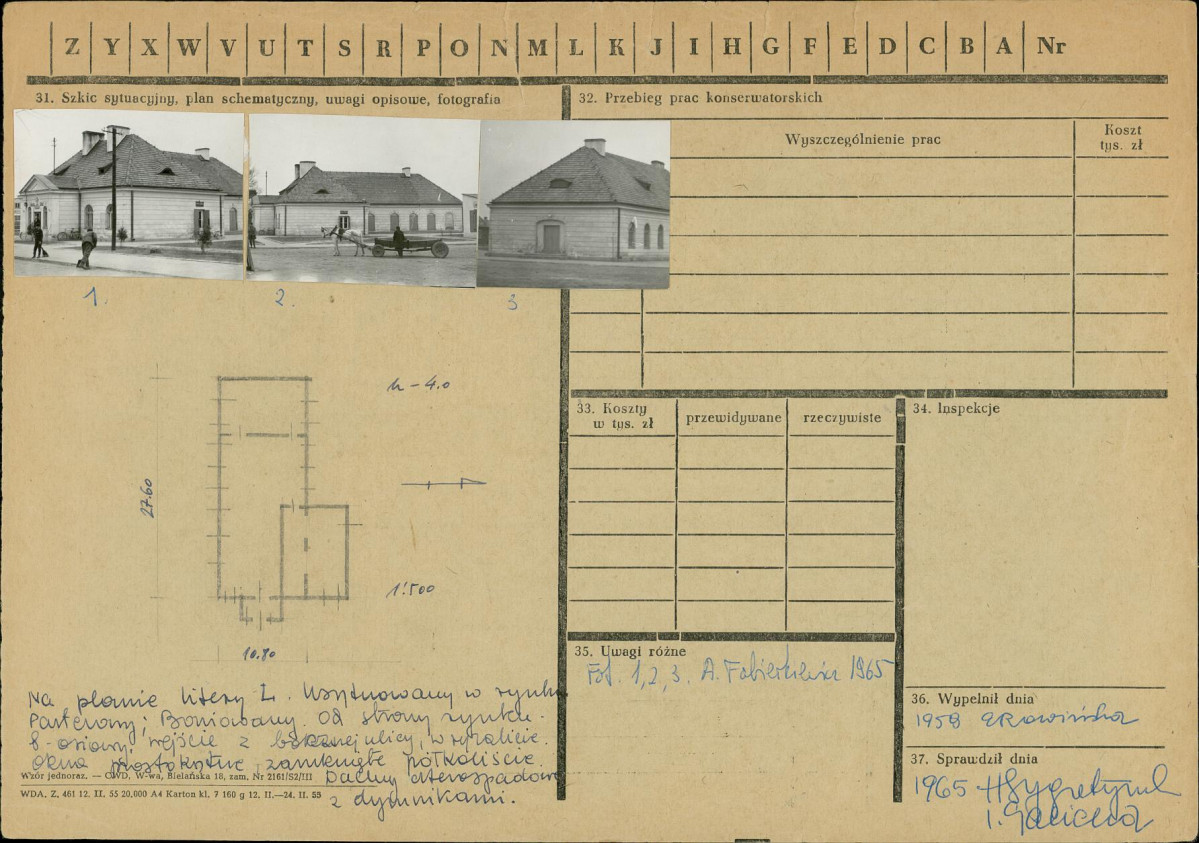 Z Y X W V U T S R P O N M L K J I H G F E D C B A Nr
31. Szkic sytuacyjny, plan schematyczny, uwagi opisowe, fotografia
32. Przebieg prac konserwatorskich
Wyszczególnienie prac
Koszt
tys. zł
1.
2.
3
h – 4.0
27.60
1:500
10.80
33. Koszty
w tys. zł
przewidywane
rzeczywiste
34. Inspekcje
35. Uwagi różne
Fot. 1, 2, 3. A. 1965
36. Wypełnił dnia
1958
37. Sprawdził dnia
1965
Na planie litery L. Usytuowany w rynku
Parterowy; Boniowany. Od strony rynku.
8-osiowy, wejście z bocznej ulicy, w ryzalicie.
Okna prostokątne, zamknięte półkoliście.
Wzór jednoraz. — CWD, W-wa, Bielańska 18, zam. Nr 2161/S2/III
Dachy czterospadowe
WDA. Z. 461 12. II. 55 20.000 A4 Karton kl. 7 160 g 12. II.—24. II. 55
z dymnikami.